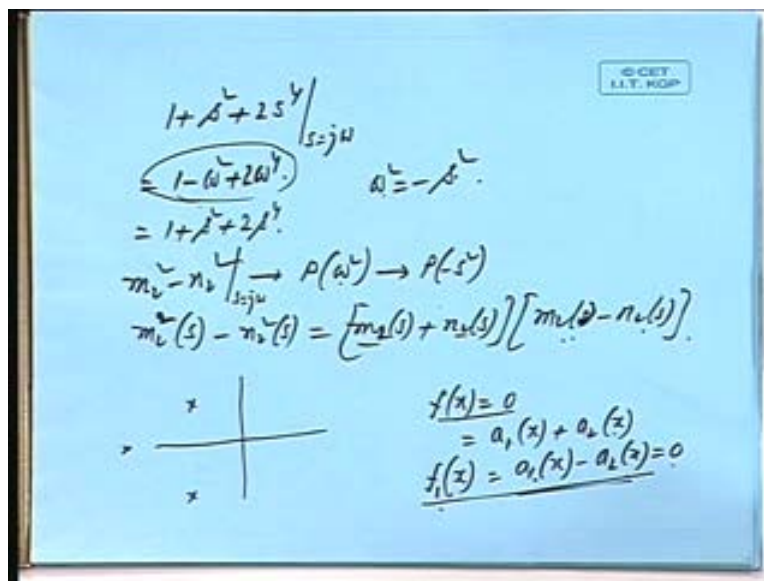 © CET
I.I.T. KGP
1 + s² + 2s⁴ |s=jω
= 1 - ω² + 2ω⁴. ω² = -s².
= 1 + s² + 2s⁴.
m₂² - n₂² |s=jω → P(ω²) → P(-s²)
m₂²(s) - n₂²(s) = [m₂(s) + n₂(s)] [m₂(s) - n₂(s)].
f(x) = 0
= a₁(x) + a₂(x)
f₁(x) = a₁(x) - a₂(x) = 0